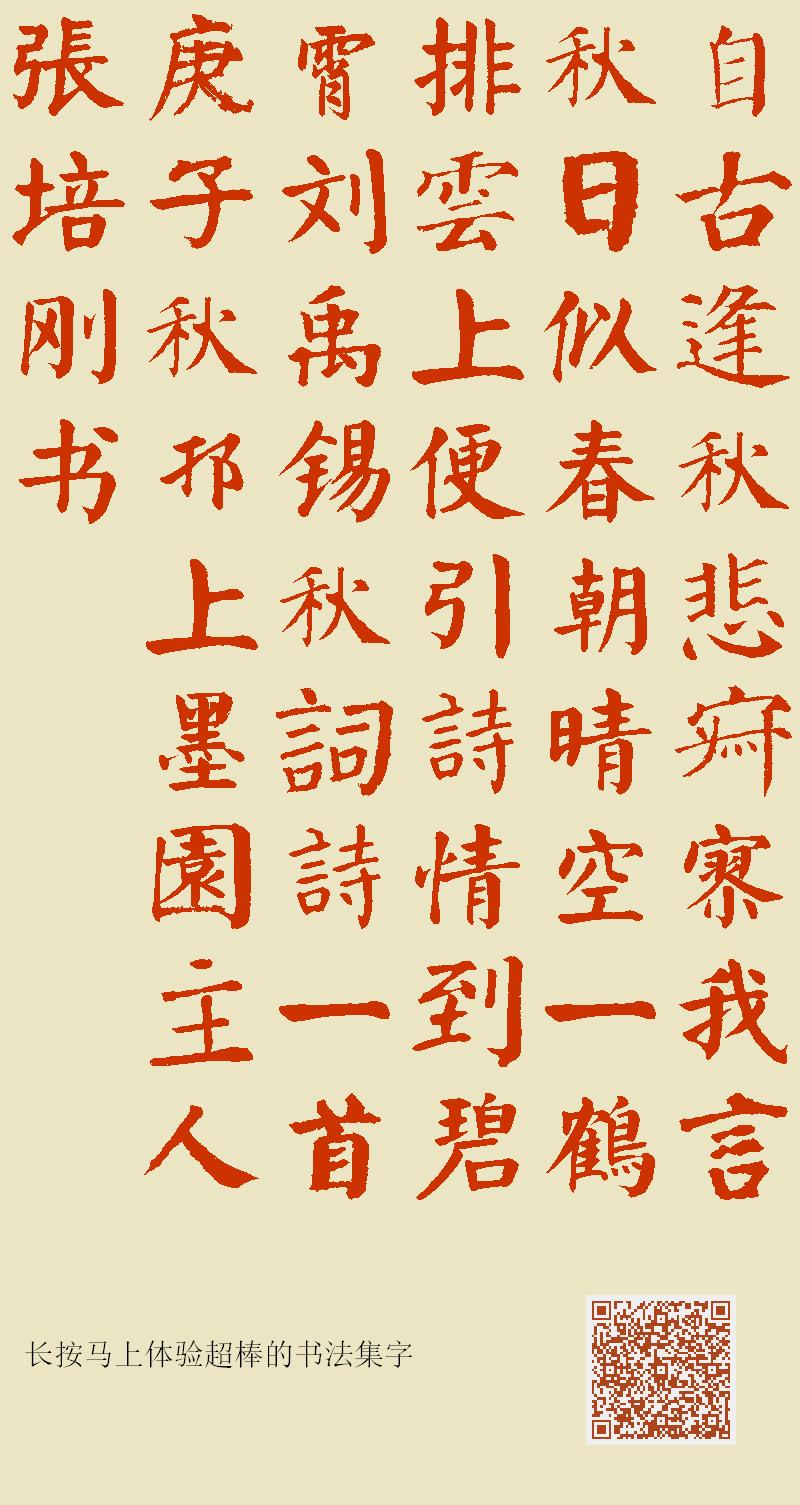 自古逢秋悲寂寥我言
秋日似春朝晴空一鶴
排雲上便引詩情到碧
霄刘禹锡秋詞詩一首
庚子秋邗上墨園主人
張培刚书
长按马上体验超棒的书法集字